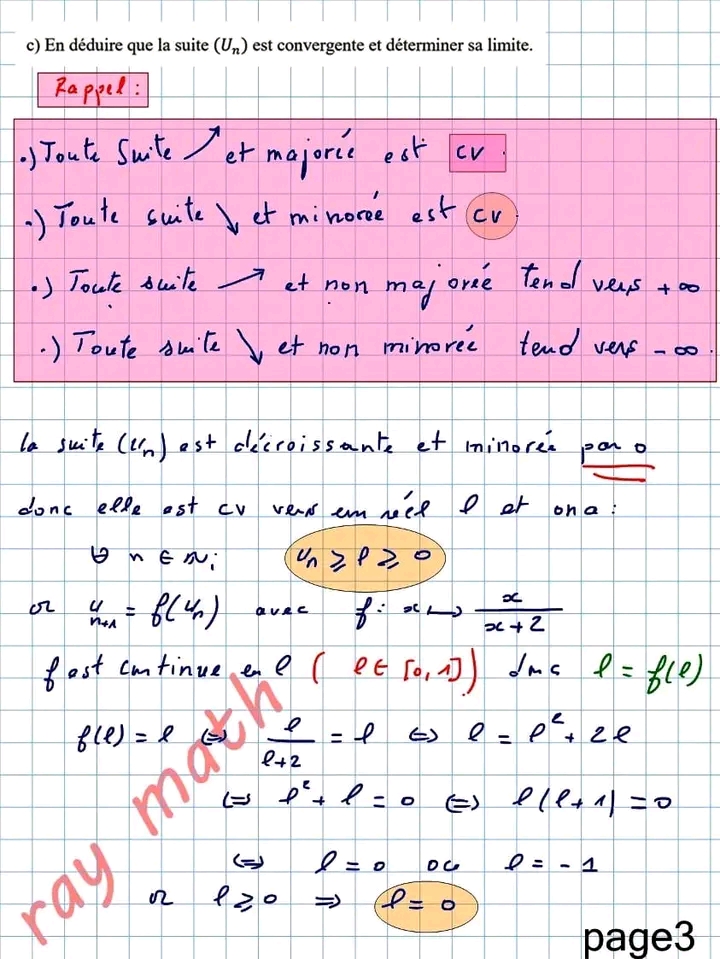 c) En déduire que la suite (Uₙ) est convergente et déterminer sa limite.
Rappel :
.) Toute Suite ↗ et majorée est cv.
.) Toute suite ↘ et minorée est cv.
.) Toute suite ↗ et non majorée Tend vers +∞
.) Toute suite ↘ et non minorée tend vers -∞.
la suite (uₙ) est décroissante et minorée par 0
donc elle est cv vers un réel l et on a :
∀ n ∈ ℕ; uₙ ⩾ l ⩾ 0
or uₙ₊₁ = f(uₙ) avec f : x ↦ x/(x+2)
f est continue en l ( l ∈ [0,1]) donc l = f(l)
f(l) = l ⇔ l/(l+2) = l ⇔ l = l² + 2l
⇔ l² + l = 0 ⇔ l(l+1) = 0
⇔ l = 0 ou l = -1
or l ⩾ 0 ⇒ l = 0
ray math
page3